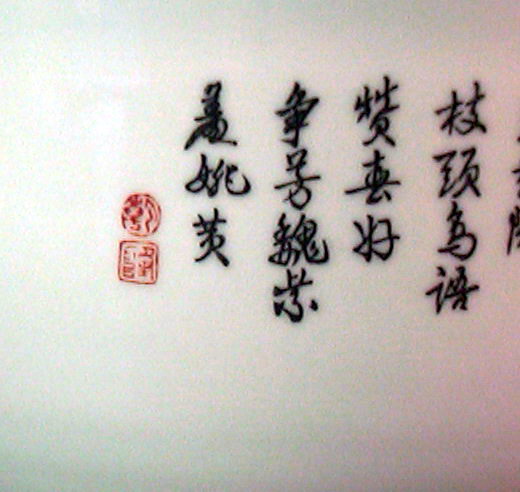 枝頭鸟语
赞春好
争芳魏紫
羞姚黄